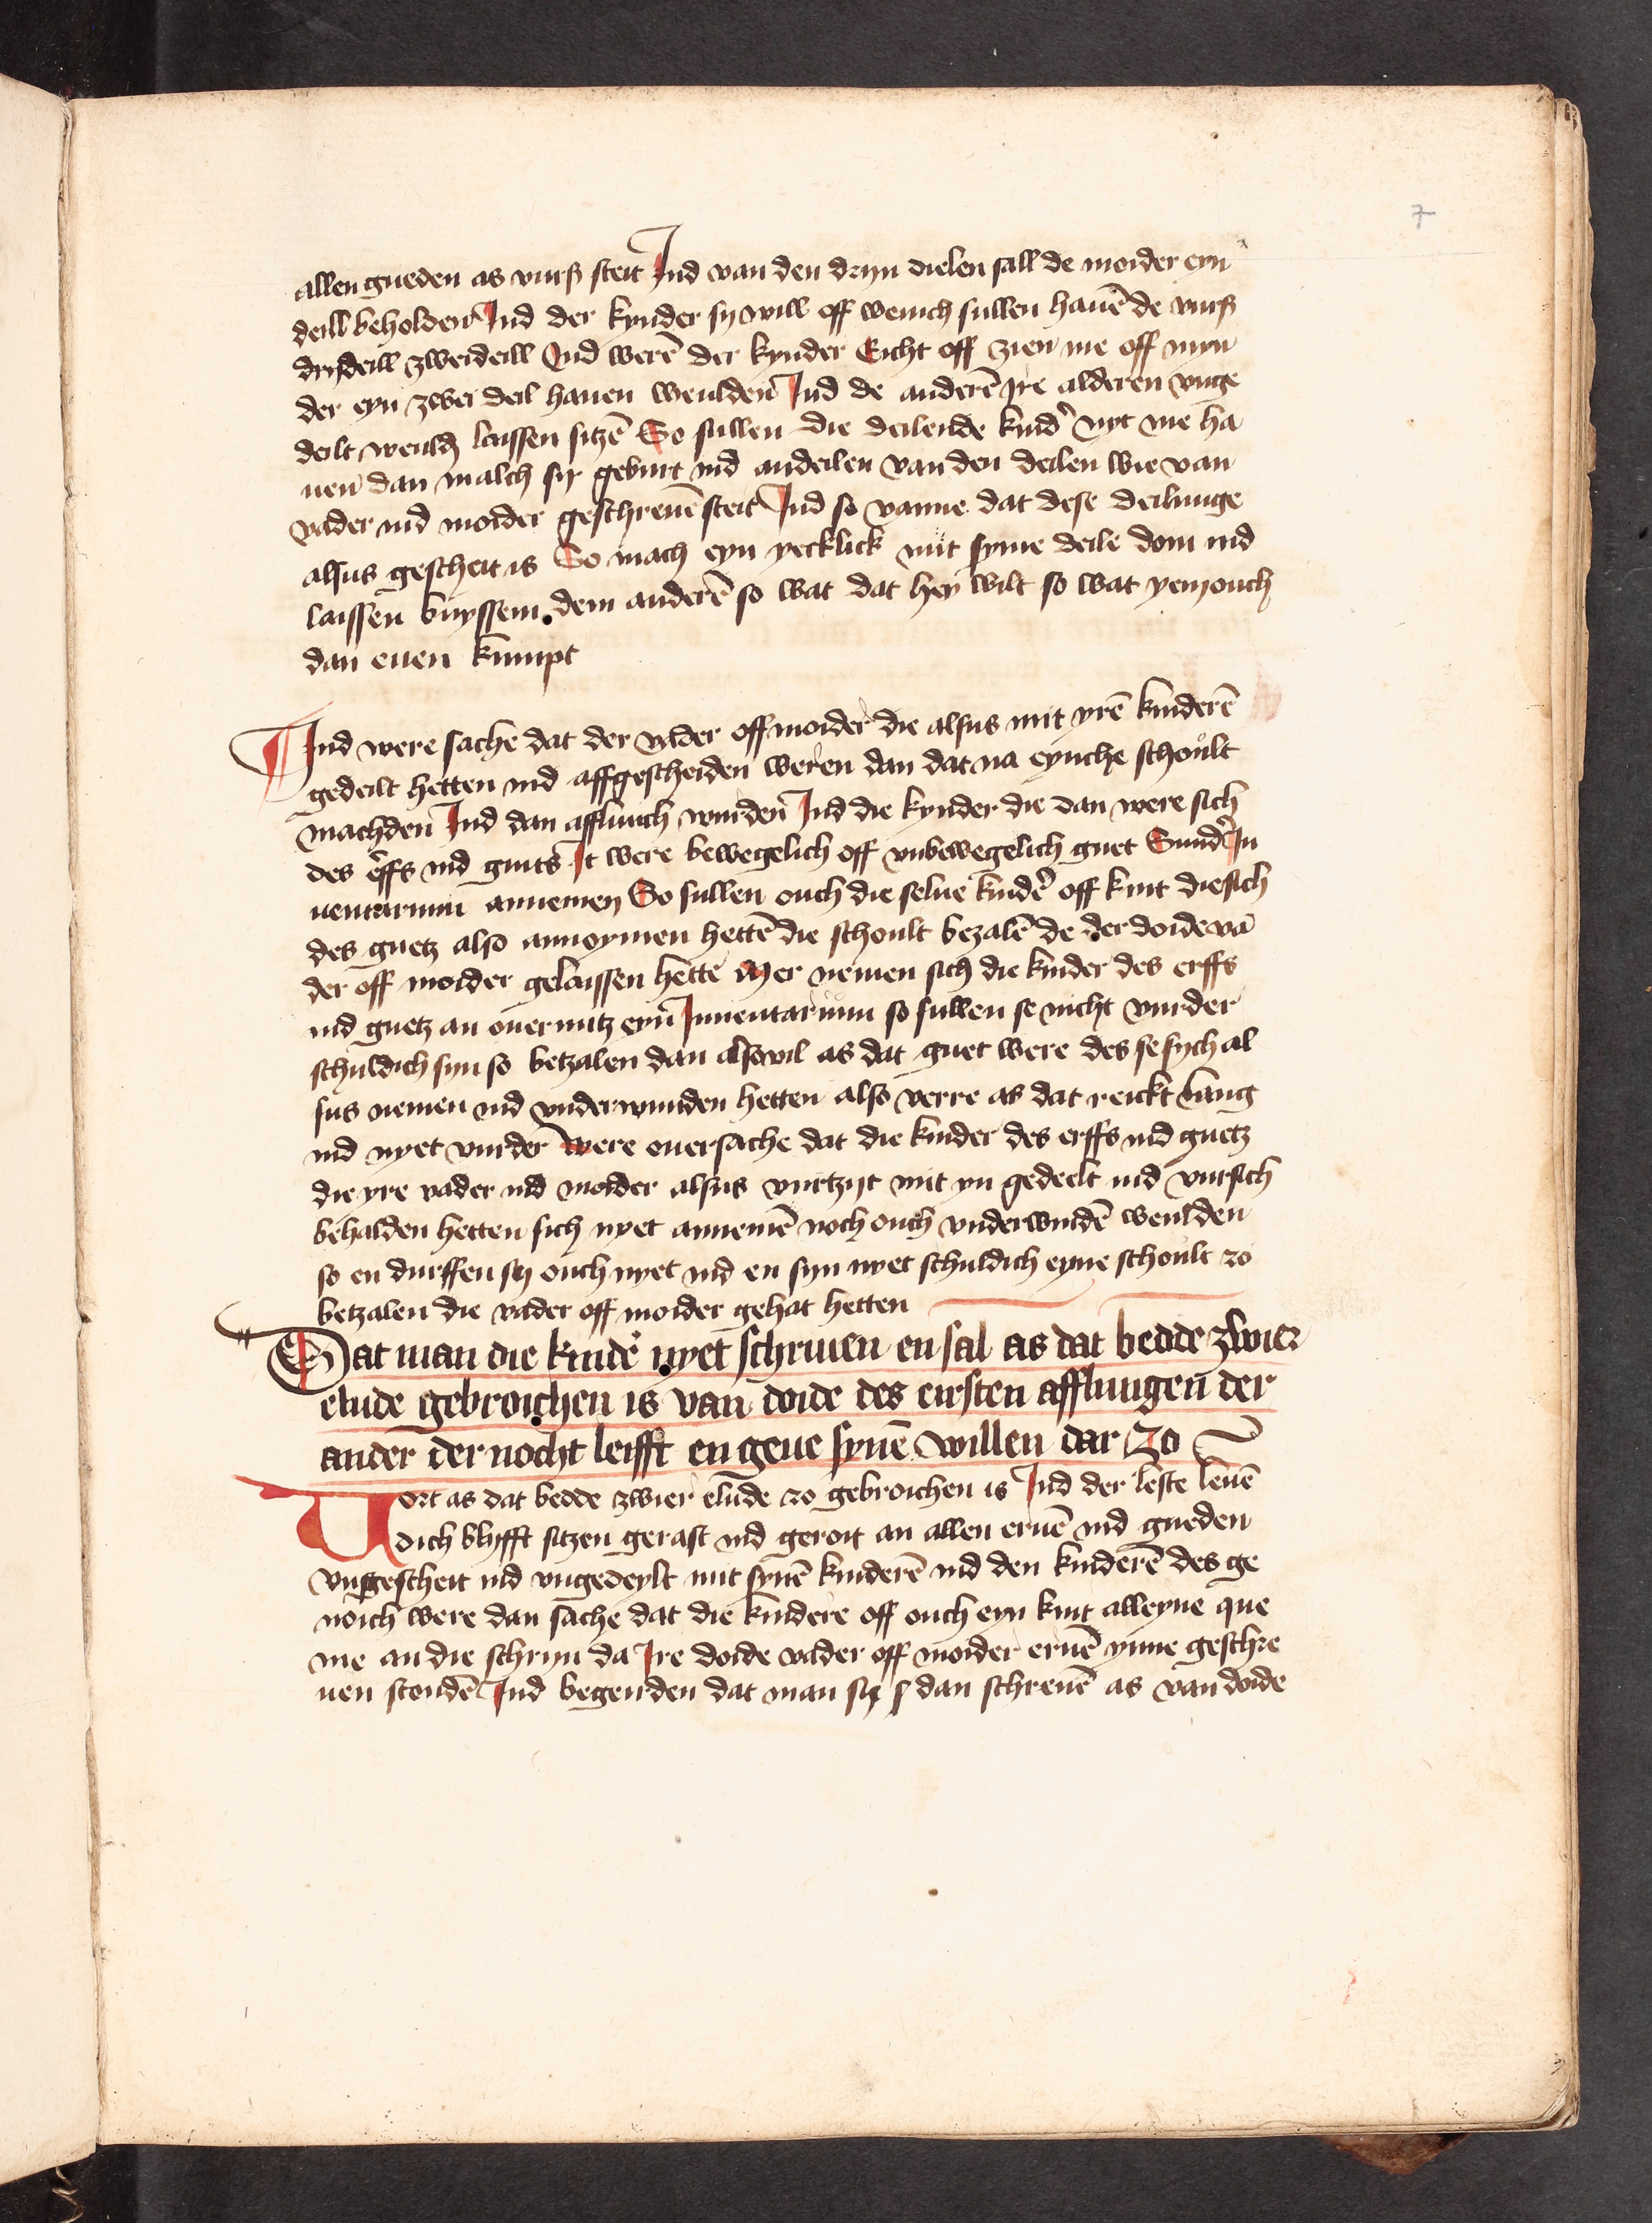 7
allen gueden as vurß steit Ind van den dryn dielen sall de moider eyn
deill beholden Ind der kynder sy vill off wenich sullen hauē de vurß
drydeill zweideill Ind werē der kynder Eicht off zien me off myn
der eyn zwei deil hauen weulden Ind de anderē Ire alderen unge
deilt weuldē laissen sitzē So sullen die deilende kind' nyt me ha
uen dan malch syr geburt ind andeilen van den deilen wie van
vader ind moider geschreuē steit Ind so vanne dat dese deilunge
alsus gescheit is So mach eyn yecklick mit syme deile doin ind
laissen buyssem dem anderē so wat dat hey wilt so wat yem ouch
dan euen kumpt
Ind were sache dat der vader off moider die alsus mit yrē kinderē
gedeilt hetten ind affgescheiden weren dan dat na eynche schoult
machden Ind dan affliuich wurden Ind die kynder die dan were sich
des erffs ind guits It were bewegelich off vnbewegelich guet Sund' In
uentarium annemen So sullen ouch die selue kind' off kint die sich
des guetz also annoymen hettē die schoult bezalē de der doide va
der off moider gelaissen hette Mer nemen sich die kinder des erffs
ind guetz an ouermitz eyn Inuentarium so sullen se nicht vurder
schuldich syn so betzalen dan alsovil as dat guet were des se sych al
sus nemen ind vnderwunden hetten also verre as dat reickt lang
ind nyet vurder Were ouersache dat die kinder des erffs ind guetz
die yre vader ind moider alsus vurtzyt mit yn gedeelt ind vursich
behalden hetten sich nyet annemē noch ouch vnderwindē weulden
so en durffen sy ouch nyet ind en syn nyet schuldich eyne schoult zo
betzalen die vader off moider gehat hetten
Dat man die kinde' nyet schriuen en sal as dat bedde zwier
elude gebroichen is van doide des eirsten afflungen der
ander der nocht leifft en geue synē willen dar zo
Vort as dat bedde zwier elude zo gebroichen is Ind der leste leuē
dich blyfft sitzen gerast ind geroit an allen eruē ind gueden
vngescheit ind vngedeylt mit synē kinderē ind den kinderē des ge
noich were dan sache dat die kindere off ouch eyn kint alleyne que
me an die schryn da Ire doide vader off moider eruē ynne geschre
uen stondē Ind begerden dat man sy dan schreuē as van doide